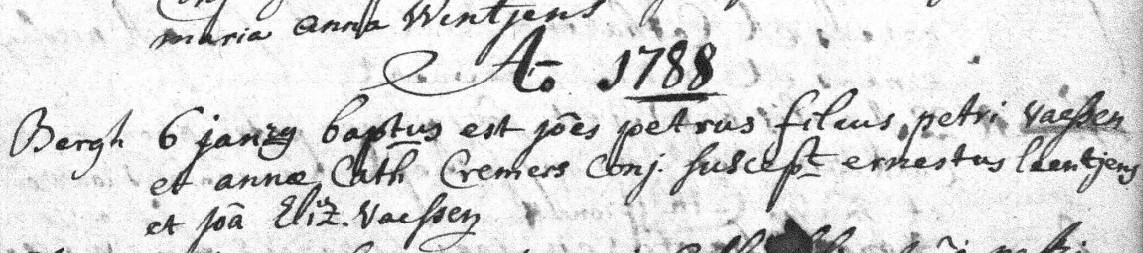 maria anna Wintjens
Ao 1788
Bergh 6 janry baptus est jōes petrus filius petri Vaessen
et annæ Cath Cremers Conj. suscept ernestus laentjens
et joā Eliz. Vaessen